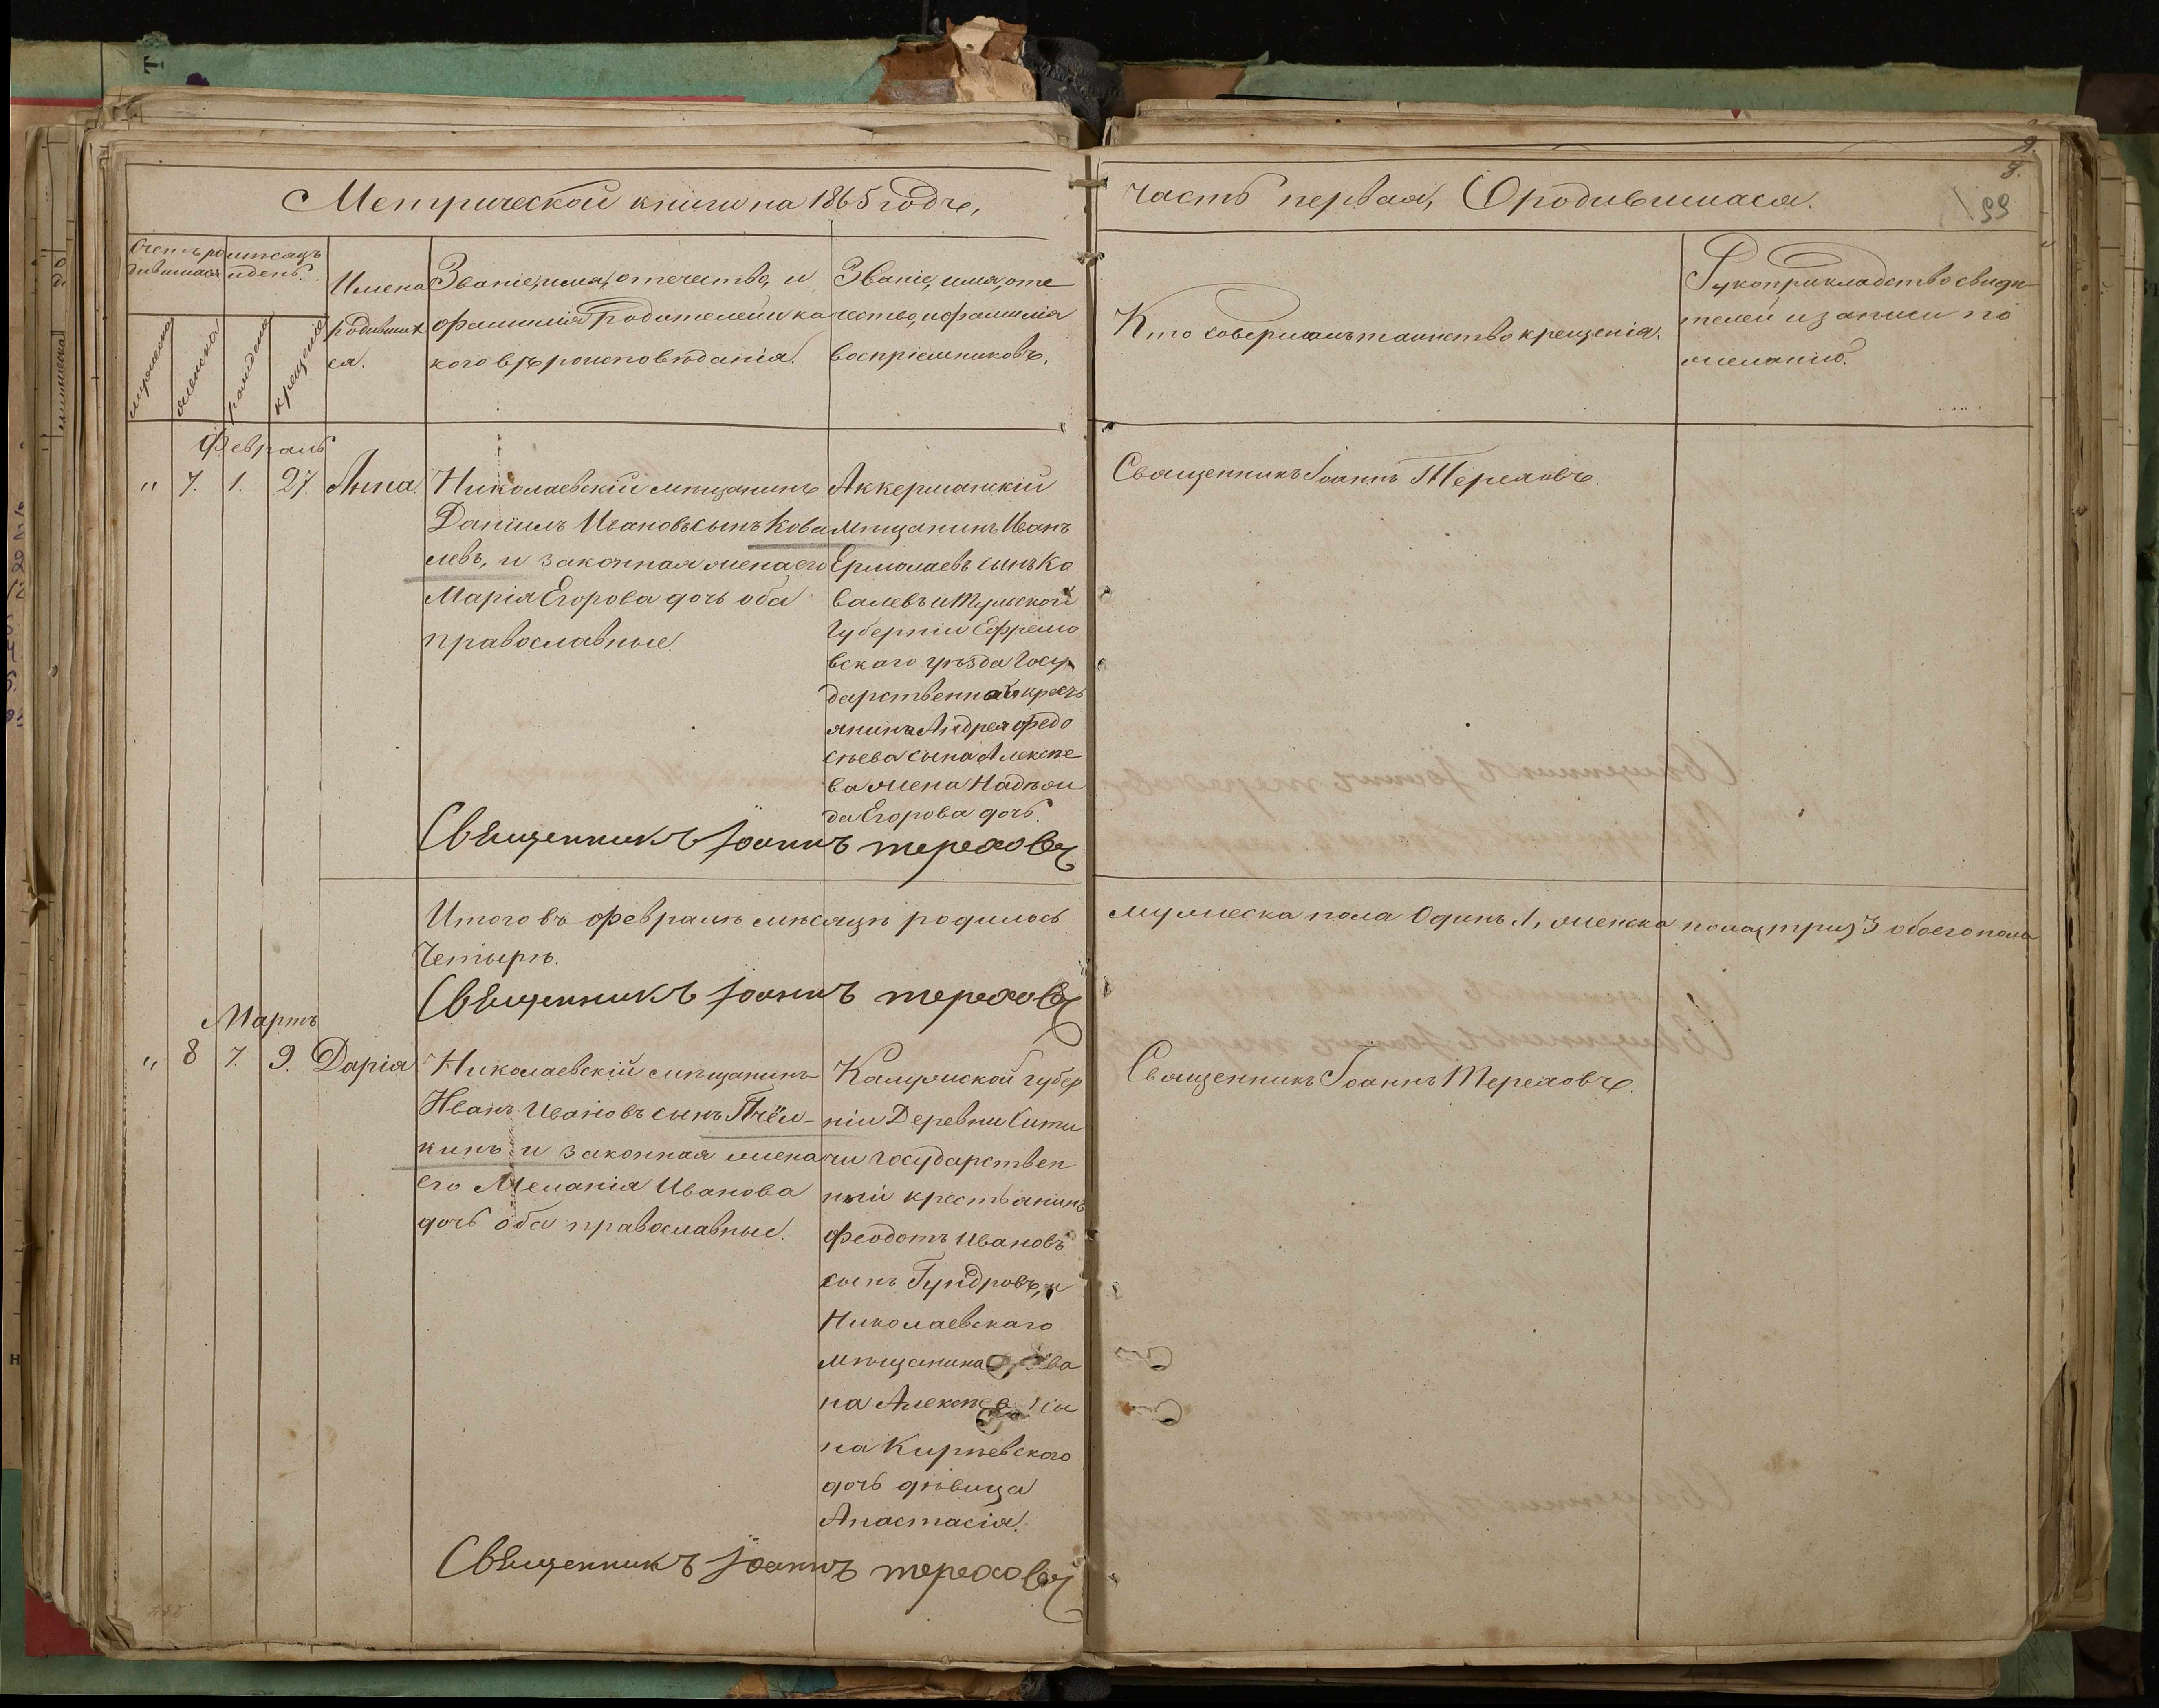 Метрической книги на 1865 годъ,
часть первая, О родившихся.
99
Счетъ родившихся
мѣсяцъ и день.
мужеска
женска
рожденія
крещенія
Имена
родивших
ся.
Званіе, имя, отечество, и
фамилія родителей и ка
кого вѣроисповѣданія.
Званіе, имя, оте
чество, и фамилія
воспріемниковъ.
Кто совершалъ таинство крещенія.
Рукоприкладство свидѣ
телей из записи по
желанію.
Февраль
" 7. 1. 27. Анна.
Николаевскій мѣщанинъ
Даніилъ Ивановъ сынъ Кова
левъ, и законная жена его
Марія Егорова дочь оба
православные.
Аккерманскій
мѣщанинъ Иванъ
Ермолаевъ сынъ Ко
валевъ и Тульской
Губерніи Ефремо
вскаго уѣзда Госу
дарственная кресть
янина Андрея Федо
сѣева сына Алексѣе
ва жена Надѣж
да Егорова дочь.
Священникъ Іоаннъ Тереховъ.
Священникъ Іоаннъ Тереховъ
Итого въ Февралѣ мѣсяцѣ родилось
мужеска пола Одинъ 1, женска пола три 3 обоего пола
Четырѣ.
Священникъ Іоаннъ Тереховъ
Мартъ
" 8 7. 9. Дарія
Николаевскій мѣщанинъ
Иванъ Ивановъ сынъ Пчёл-
кинъ и законная жена
его Меланія Иванова
дочь оба православные.
Калужской губер
ніи Деревни Сити
чи государствен
ный крестьянинъ
Феодотъ Ивановъ
сынъ Гундровъ, и
Николаевскаго
мѣщанина Ива
на Алексѣева сы
на Кирѣевскаго
дочь дѣвица
Анастасія.
Священникъ Іоаннъ Тереховъ.
Священникъ Іоаннъ Тереховъ